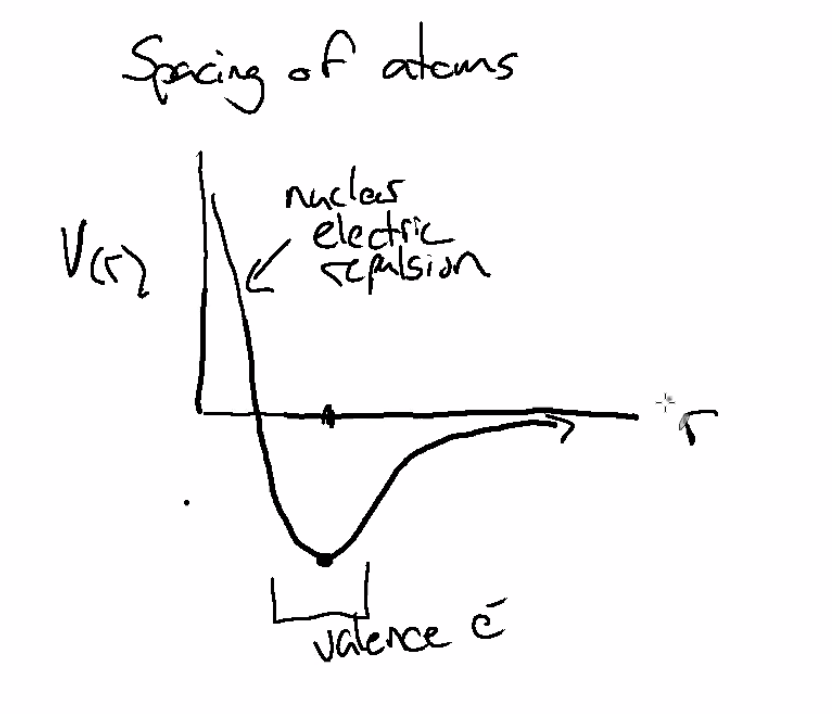 Spacing of atoms
nuclear
electric
repulsion
V(r)
r
valence e⁻